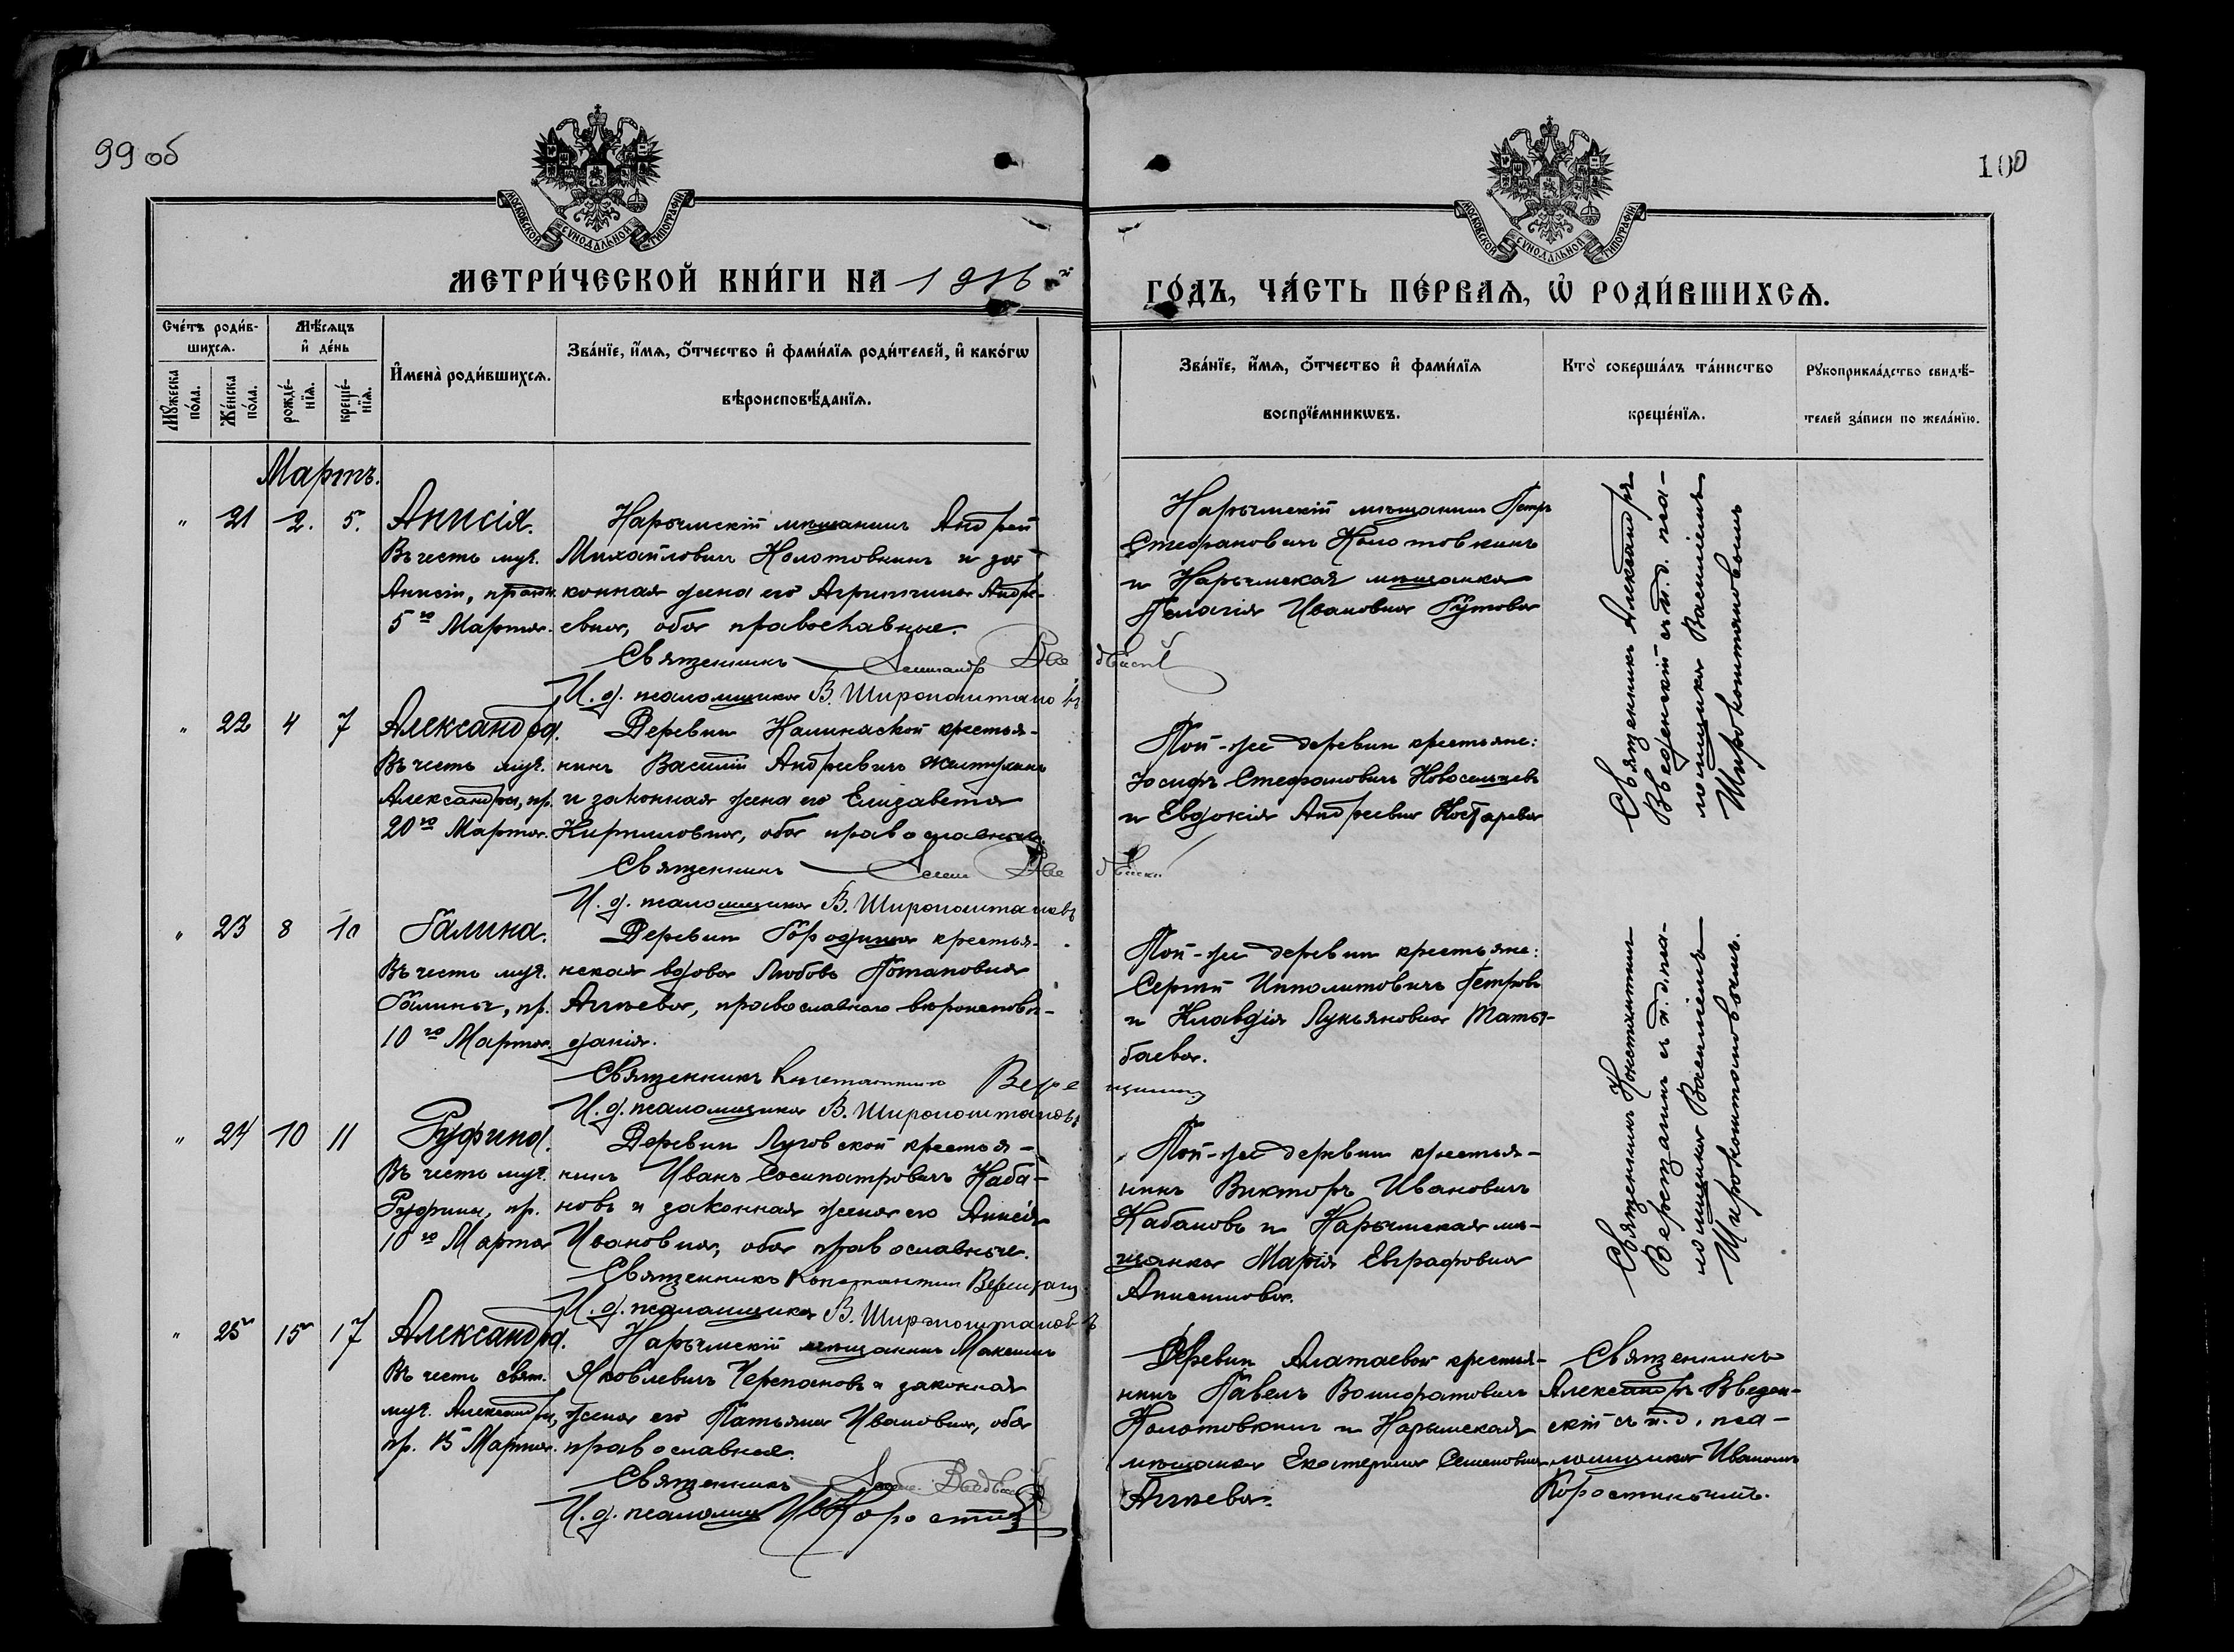 99 об
100
МОСКОВСКОЙ СѴНОДАЛЬНОЙ ТИПОГРАФІИ
МОСКОВСКОЙ СѴНОДАЛЬНОЙ ТИПОГРАФІИ
МЕТРИ́ЧЕСКОЙ КНИ́ГИ НА 1916 й
ГО́ДЪ, ЧА́СТЬ ПЕ́РВАѦ, Ѿ РОДИ́ВШИХСѦ.
Сче́тъ роди́в-
шихсѧ.
Мѣ́сѧцъ
и҆ де́нь
Мꙋ́жеска
по́ла.
Же́нска
по́ла.
рожде́-
нїѧ.
креще́-
нїѧ.
И҆мена̀ роди́вшихсѧ.
Зва́нїе, и҆́мѧ, ѻ҆́тчество и҆ фами́лїѧ роди́телей, и҆ како́гѡ
вѣроисповѣ́данїѧ.
Зва́нїе, и҆́мѧ, ѻ҆́тчество и҆ фами́лїѧ
воспрїе́мникѡвъ.
Кто̀ соверша́лъ та́инство
креще́нїѧ.
Рꙋкоприкла́дство свидѣ́-
телей за́писи по жела́нїю.
Мартъ.
" 21 2. 5. Анисія.
Въ честь муч.
Анисіи, праздн.
5го Марта.
Нарымскій мѣщанинъ Андрей
Михайловичъ Колотовкинъ и за-
конная жена его Агриппина Андре-
евна, оба православные.
Священникъ Александр Введенскій
И. д. псаломщика В. Широкоштановъ
Нарымскій мѣщанинъ Петръ
Стефановичъ Колотовкинъ
и Нарымская мѣщанка
Пелагія Ивановна Гутова
Священникъ Александръ
Введенскій съ и. д. пса-
ломщика Василіемъ
Широкоштановымъ
" 22 4 7 Александра.
Въ честь муч.
Александры, пр.
20го Марта.
Деревни Калинаской крестья-
нинъ Василій Андреевичъ
и законная жена его Елизавета
Кирилловна, оба православные.
Священникъ
И. д. псаломщика В. Широкоштановъ
Той-же деревни крестьяне:
Іосифъ Стефановичъ Новосельцевъ
и Евдокія Андреевна Костарева
" 23 8 10 Галина.
Въ честь муч.
Галины, пр.
10го Марта.
Деревни Городища крестья-
нская вдова Любовь Потаповна
Агѣева, православнаго вѣроисповѣ-
данія.
Священникъ Константинъ Верещагинъ
И. д. псаломщика В. Широкоштановъ
Той-же деревни крестьяне:
Сергій Ипполитовичъ Петровъ
и Клавдія Лукьяновна Таты-
баева.
Священникъ Константинъ
Верещагинъ съ и. д. пса-
ломщика Василіемъ
Широкоштановымъ.
" 24 10 11 Руфина.
Въ честь муч.
Руфины, пр.
10го Марта
Деревни Луговской крестья-
нинъ Иванъ Сосипатровичъ Каба-
новъ и законная жена его Анисія
Ивановна, оба православные.
Священникъ Константинъ Верещагинъ
И. д. псаломщика В. Широкоштановъ
Той-же деревни крестья-
нинъ Викторъ Ивановичъ
Кабановъ и Нарымская мѣ-
щанка Марія Евграфовна
Анисимова.
" 25 15 17 Александра.
Въ честь свят.
муч. Александры,
пр. 15 Марта.
Нарымскій мѣщанинъ Максимъ
Яковлевичъ Черепановъ и законная
жена его Татьяна Ивановна, оба
православные.
Священникъ
И. д. псаломщ
Деревни Алатаевой крестья-
нинъ Павелъ Вонифатовичъ
Колотовкинъ и Нарымская
мѣщанка Екатерина Семеновна
Агѣева.
Священникъ
Александръ Введен-
скій съ и. д. пса-
ломщика Иваномъ
Коростинымъ.